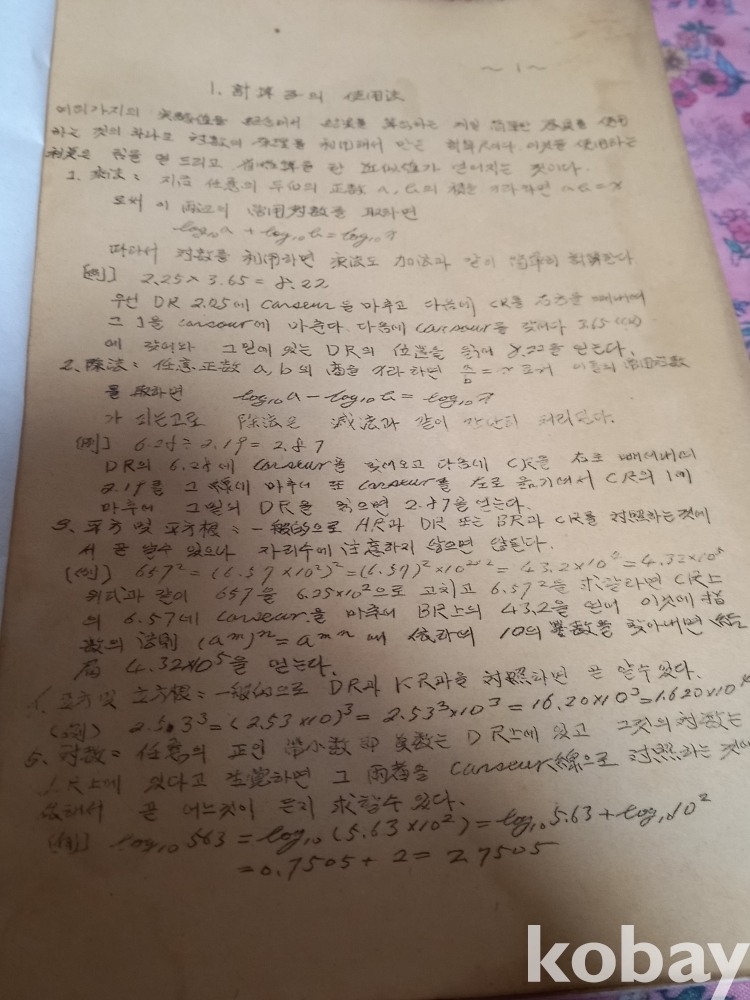 ~ 1 ~
1. 計算子의 使用法
여러가지의 実驗値를 하는 것의 하나로 対數의 를 利用해서 만든 計算尺이다. 이것을 使用하는
것이다.
1. 乘法: 지금 任意의 두個의 正數 a, b의 積을 x라 하면 ab = x
로써 이 兩辺의 常用対數를 取하면
log₁₀a + log₁₀b = log₁₀x
따라서 対數를 利用하면 乘法도 加法과 같이 簡単히 計算된다
[例] 2.25 × 3.65 = 8.22
우선 DR 2.25에 curseur를 마추고 다음에 CR를 右로 빼내여
그 1을 curseur에 마춘다. 다음에 curseur를 3.65 (CR)
에 갖어와 그 밑에 있는 DR의 位置를 읽어 8.22를 얻는다.
2. 除法: 任意正數 a, b의 商을 x라 하면 a/b = x 이들의 常用対數
를 取하면 log₁₀a - log₁₀b = log₁₀x
가 되는고로 除法은 減法과 같이 간단히 처리된다.
[例] 6.28 ÷ 2.19 = 2.87
DR의 6.28에 curseur를 갖어오고 다음에 CR을 右로 빼여내여
2.19를 그 線에 마추어 또 curseur를 左로 옮기여서 CR의 1에
마추어 그 밑의 DR을 읽으면 2.87을 얻는다.
3. 平方 및 平方根: 一般的으로 AR과 DR 또는 BR과 CR를 対照하는 것에
서 곧 알수 있으나 자리수에 注意하지 않으면 않된다.
(例) 657² = (6.57 × 10²)² = (6.57)² × 10²ˣ² = 43.2 × 10⁴ = 4.32 × 10⁵
위리과 같이 657을 6.25×10²으로 고치고 6.57²을 求할라면 CR上
의 6.57에 curseur를 마추어 BR上의 43.2을 얻어 이것에 指
數의 法則 (aᵐ)ⁿ = aᵐⁿ에 依하여 10의 冪數를 찾아내면 結
局 4.32×10⁵을 얻는다.
4. 立方 및 立方根: 一般的으로 DR과 KR과을 対照하면 곧 알수 있다.
(例) 25.3³ = (2.53 × 10)³ = 2.53³ × 10³ = 16.20 × 10³ = 1.620 × 10⁴
5. 対數: 任意의 正인 帶小數 即 眞數는 DR上에 있고 그것의 対數는
LR上에 있다고 生覺하면 그 兩者를 curseur線으로 対照하는 것에
依해서 곧 어느것이 든지 求할수 있다.
[例] log₁₀ 563 = log₁₀ (5.63 × 10²) = log₁₀ 5.63 + log₁₀ 10²
= 0.7505 + 2 = 2.7505
kobay